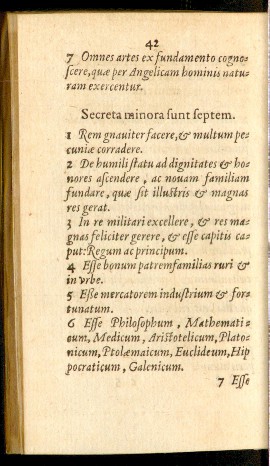 42
7 Omnes artes ex fundamento cogno-
ſcere, quæ per Angelicam hominis natu-
ram exercentur.
Secreta minora ſunt ſeptem.
1 Rem gnauiter facere, & multum pe-
cuniæ corradere.
2 De humili ſtatu ad dignitates & ho-
nores aſcendere, ac nouam familiam
fundare, quæ ſit illuſtris & magnas
res gerat.
3 In re militari excellere, & res ma-
gnas feliciter gerere, & eſſe capitis ca-
put: Regum ac principum.
4 Eſſe bonum patremfamilias ruri &
in vrbe.
5 Eſſe mercatorem induſtrium & for-
tunatum.
6 Eſſe Philoſophum, Mathemati-
cum, Medicum, Ariſtotelicum, Plato-
nicum, Ptolæmaicum, Euclideum, Hip
pocraticum, Galenicum.
7 Eſſe